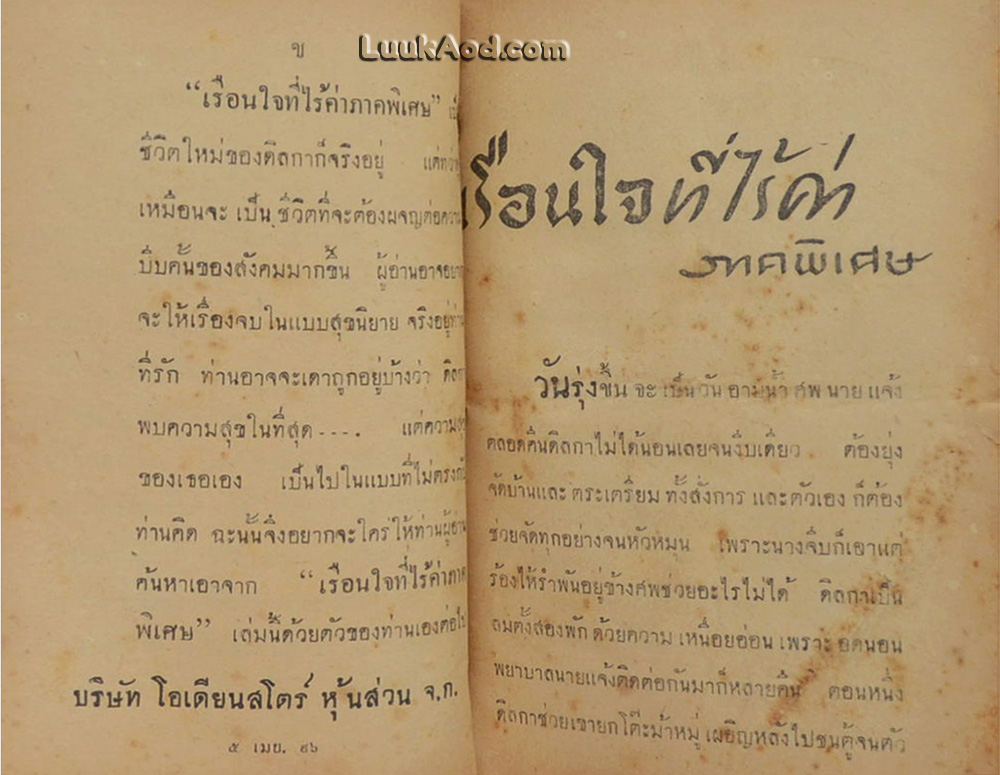 ข
LuukAod.com
“เรือนใจที่ไร้ค่าภาคพิเศษ”
ชีวิตใหม่ของดิลกาก็จริงอยู่ แต่
เหมือนจะ เป็น ชีวิตที่จะต้องผจญต่อ
บีบคั้นของสังคมมากขึ้น ผู้อ่านอาจ
จะให้เรื่องจบในแบบสุขนิยาย จริงอยู่
ที่รัก ท่านอาจจะเดาถูกอยู่บ้างว่า
พบความสุขในที่สุด.... แต่
ของเธอเอง เป็นไปในแบบที่ไม่ตรง
ท่านคิด ฉะนั้นจึงอยากจะใคร่ให้ท่าน
ค้นหาเอาจาก “เรือนใจที่ไร้ค่าภาค
พิเศษ” เล่มนี้ด้วยตัวของท่านเองต่อไป
บริษัท โอเดียนสโตร์ หุ้นส่วน จ.ก.
๕ เมย. ๙๖
เรือนใจที่ไร้ค่า
ภาคพิเศษ
วันรุ่งขึ้น จะ เป็น วัน อาบน้ำ ศพ นาย แจ้ง
ตลอดคืนดิลกาไม่ได้นอนเลยจนงีบเดียว ต้องยุ่ง
จัดบ้านและ ตระเตรียม ทั้งสั่งการ และตัวเอง ก็ต้อง
ช่วยจัดทุกอย่างจนหัวหมุน เพราะนางจีบก็เอาแต่
ร้องไห้รำพันอยู่ข้างศพช่วยอะไรไม่ได้ ดิลกาเป็น
ลมตั้งสองพัก ด้วยความ เหนื่อยอ่อน เพราะ อดนอน
พยาบาลนายแจ้งติดต่อกันมาก็หลายคืน ตอนหนึ่ง
ดิลกาช่วยเขายกโต๊ะม้าหมู่ เผอิญหลังไปชนตู้จนตัว